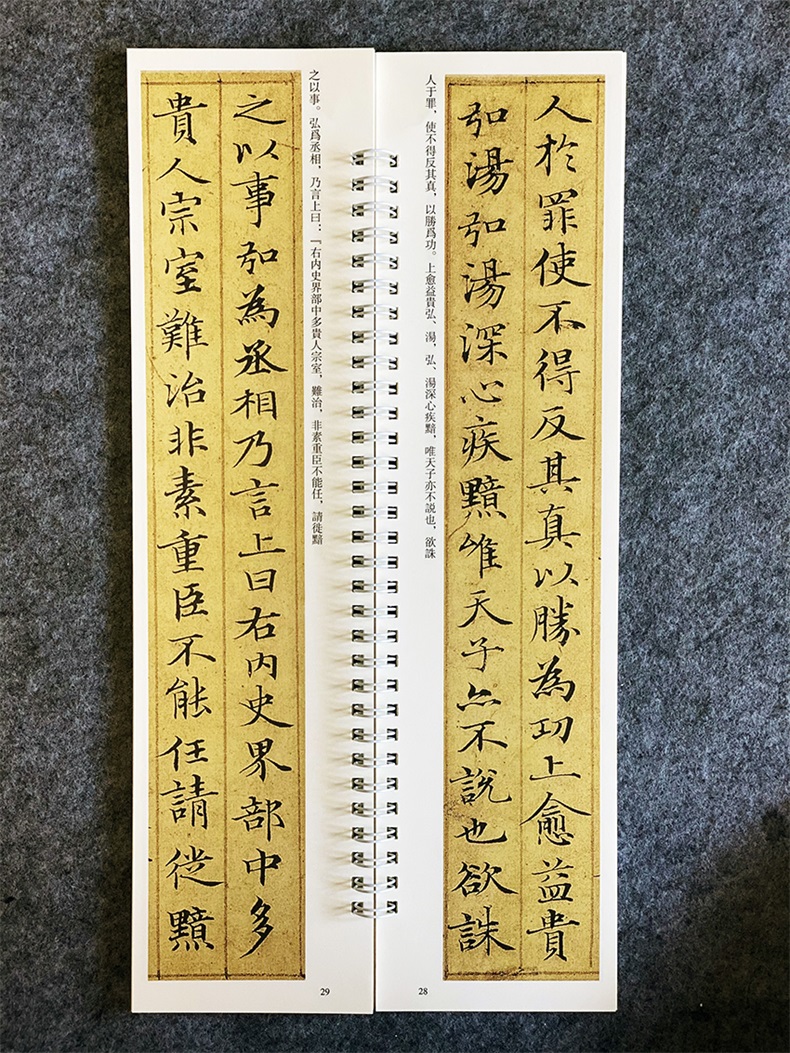 人於罪使不得反其真以勝為功上愈益貴
弘湯弘湯深心疾黯唯天子亦不說也欲誅
人于罪，使不得反其真，以勝爲功。上愈益貴弘、湯，弘、湯深心疾黯，唯天子亦不説也，欲誅
28
之以事。弘爲丞相，乃言上曰：「右内史界部中多貴人宗室，難治，非素重臣不能任，請徙黯
之以事弘為丞相乃言上曰右内史界部中多
貴人宗室難治非素重臣不能任請徙黯
29